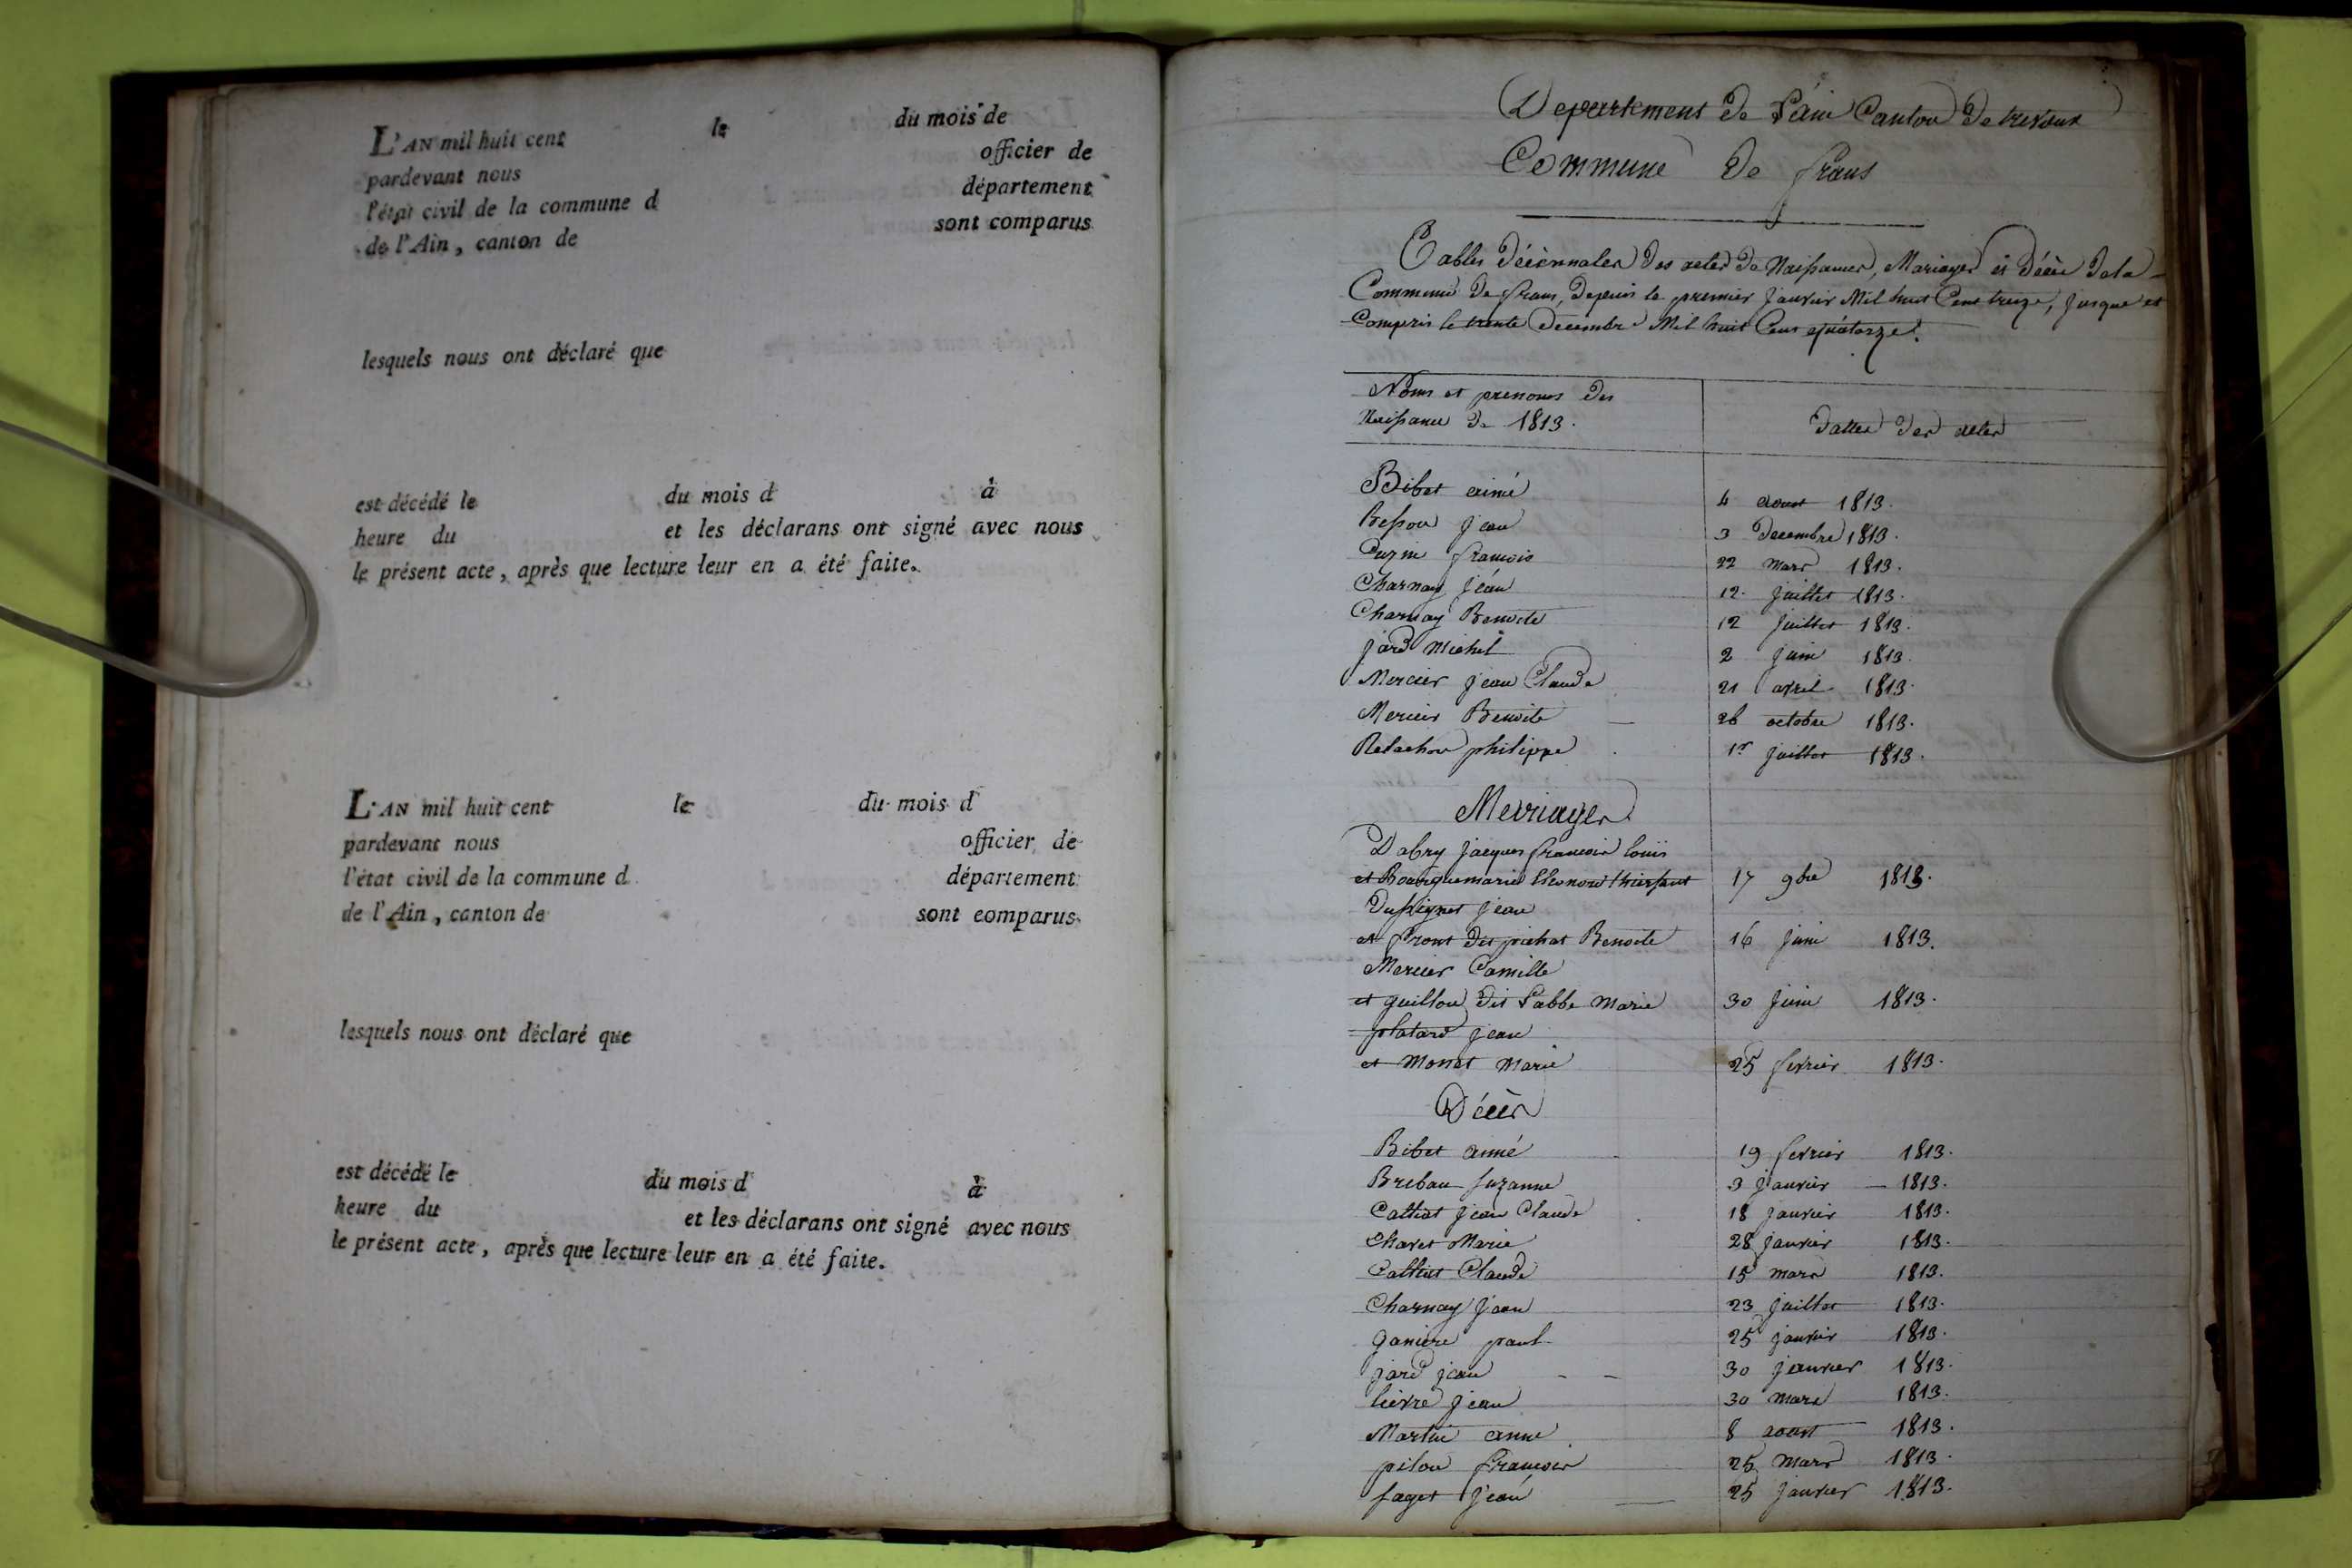 L'AN mil huit cent le du mois de
pardevant nous officier de
l'état civil de la commune d département
de l'Ain, canton de sont comparus
lesquels nous ont déclaré que
est décédé le du mois d à
heure du et les déclarans ont signé avec nous
le présent acte, après que lecture leur en a été faite.
L'AN mil huit cent le du mois d
pardevant nous officier de
l'état civil de la commune d département
de l'Ain, canton de sont comparus
lesquels nous ont déclaré que
est décédé le du mois d à
heure du et les déclarans ont signé avec nous
le présent acte, après que lecture leur en a été faite.
Departement de L'ain Canton de trevoux
Commune de frans
Tables décennales des actes de Naissances, Mariages et Décès de la
Commune de frans, Depuis le premier Janvier Mil huit Cent treize, jusque et
Compris le trente Decembre Mil huit Cent quatorze.
Noms et prenoms des
Naissance de 1813.
Dattes des actes
Bibet aimé 4 aoust 1813.
Besson jean 3 Decembre 1813.
Cuzin francois 22 mars 1813.
Charnay jean 12 juillet 1813.
Charnay Benoite 12 juillet 1813.
jard Michel 2 juin 1813.
Mercier jean Claude 21 avril 1813.
Mercier Benoite 26 octobre 1813.
Relachon philippe 1er juillet 1813.
Mariages
Dabry jacques francois louis
et Marie 17 9bre 1813.
Dussignet jean
et front dit pichat Benoite 16 juin 1813.
Mercier Camille
et guillon dit Labbe Marie 30 juin 1813.
platard jean
et Monet Marie 25 fevrier 1813.
Décès
Bibet aimé 19 fevrier 1813.
Breban suzanne 3 janvier 1813.
Cattiat jean Claude 18 janvier 1813.
Charet Marie 28 janvier 1813.
Claude 15 mars 1813.
Charnay jean 23 juillet 1813.
ganiere paul 25 janvier 1813.
jard jean 30 janvier 1813.
lievre jean 30 mars 1813.
Martin anne 8 aoust 1813.
pilon francois 25 mars 1813.
faget jean 25 janvier 1813.